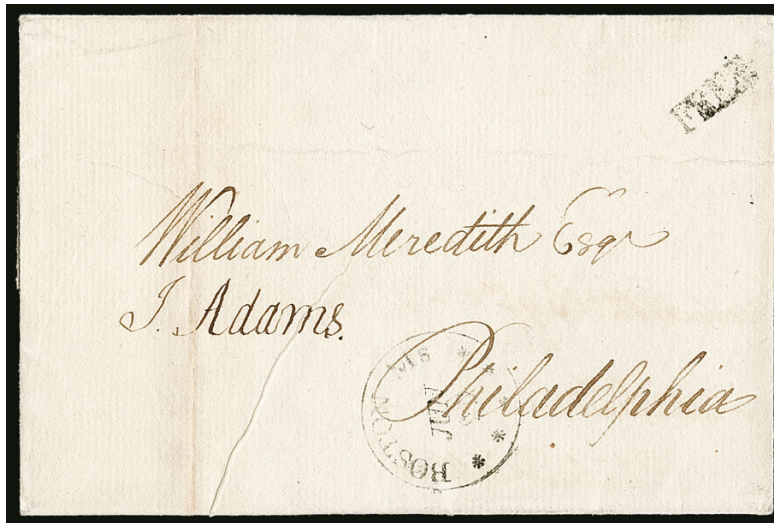 FREE
William Meredith Esqr
J. Adams.
Philadelphia
BOSTON MS